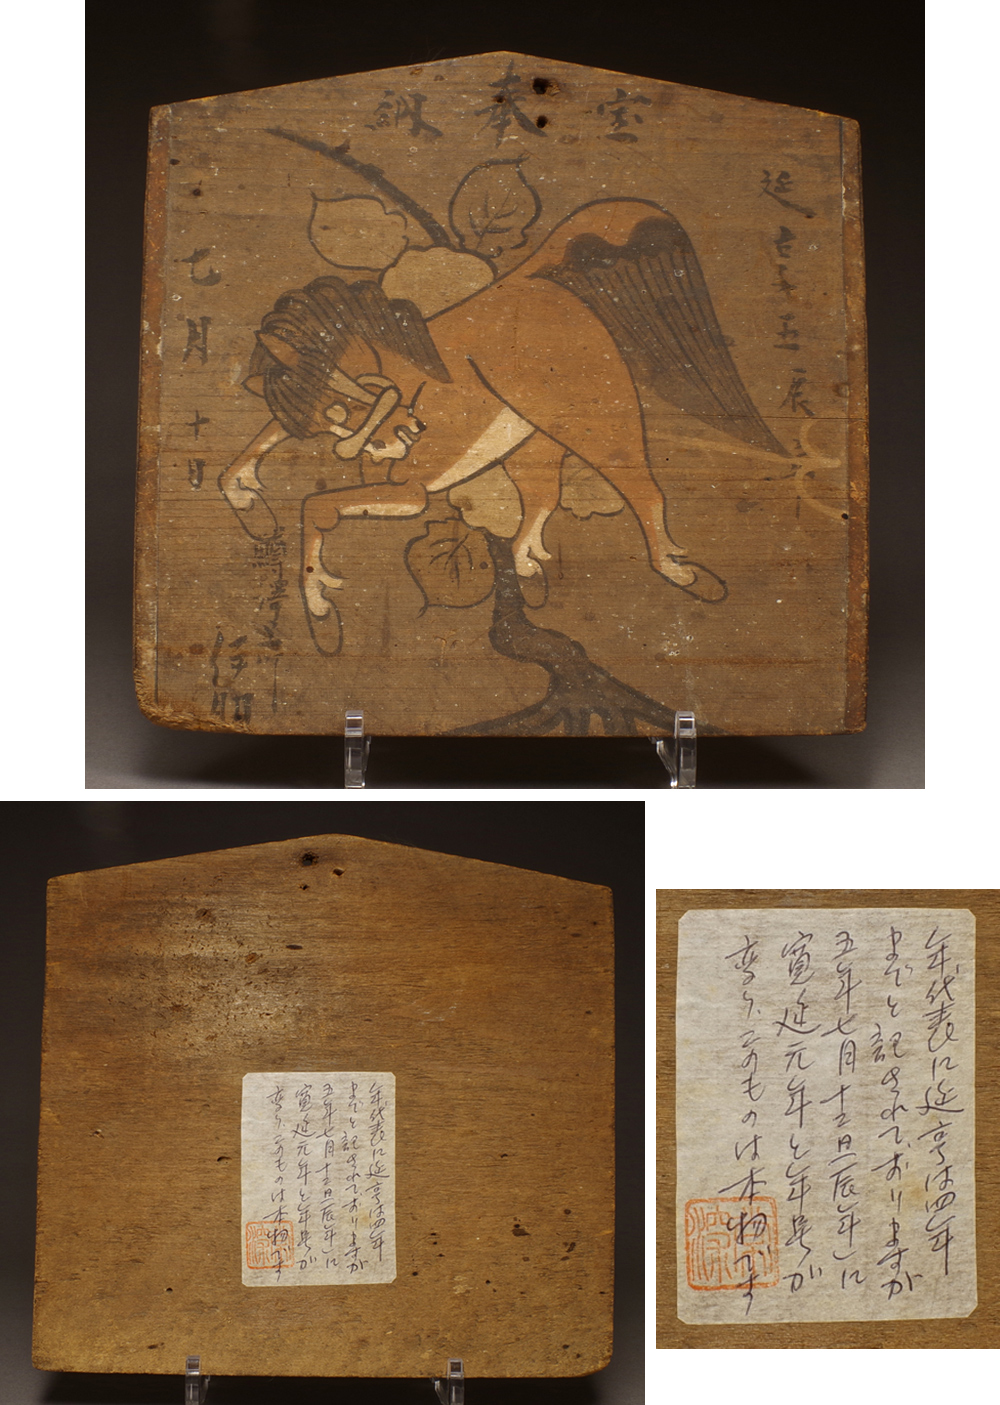 奉納
延享五辰
七月十日
年代表に延享は四年
までと記されておりますが
五年七月十二日「辰年」に
寛延元年と年号が
変り、このものは本物です
年代表に延享は四年
までと記されておりますが
五年七月十二日「辰年」に
寛延元年と年号が
変り、このものは本物です